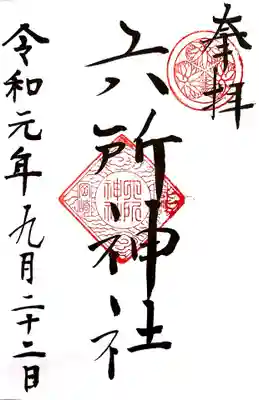 奉拝
六所神社
令和元年九月二十二日